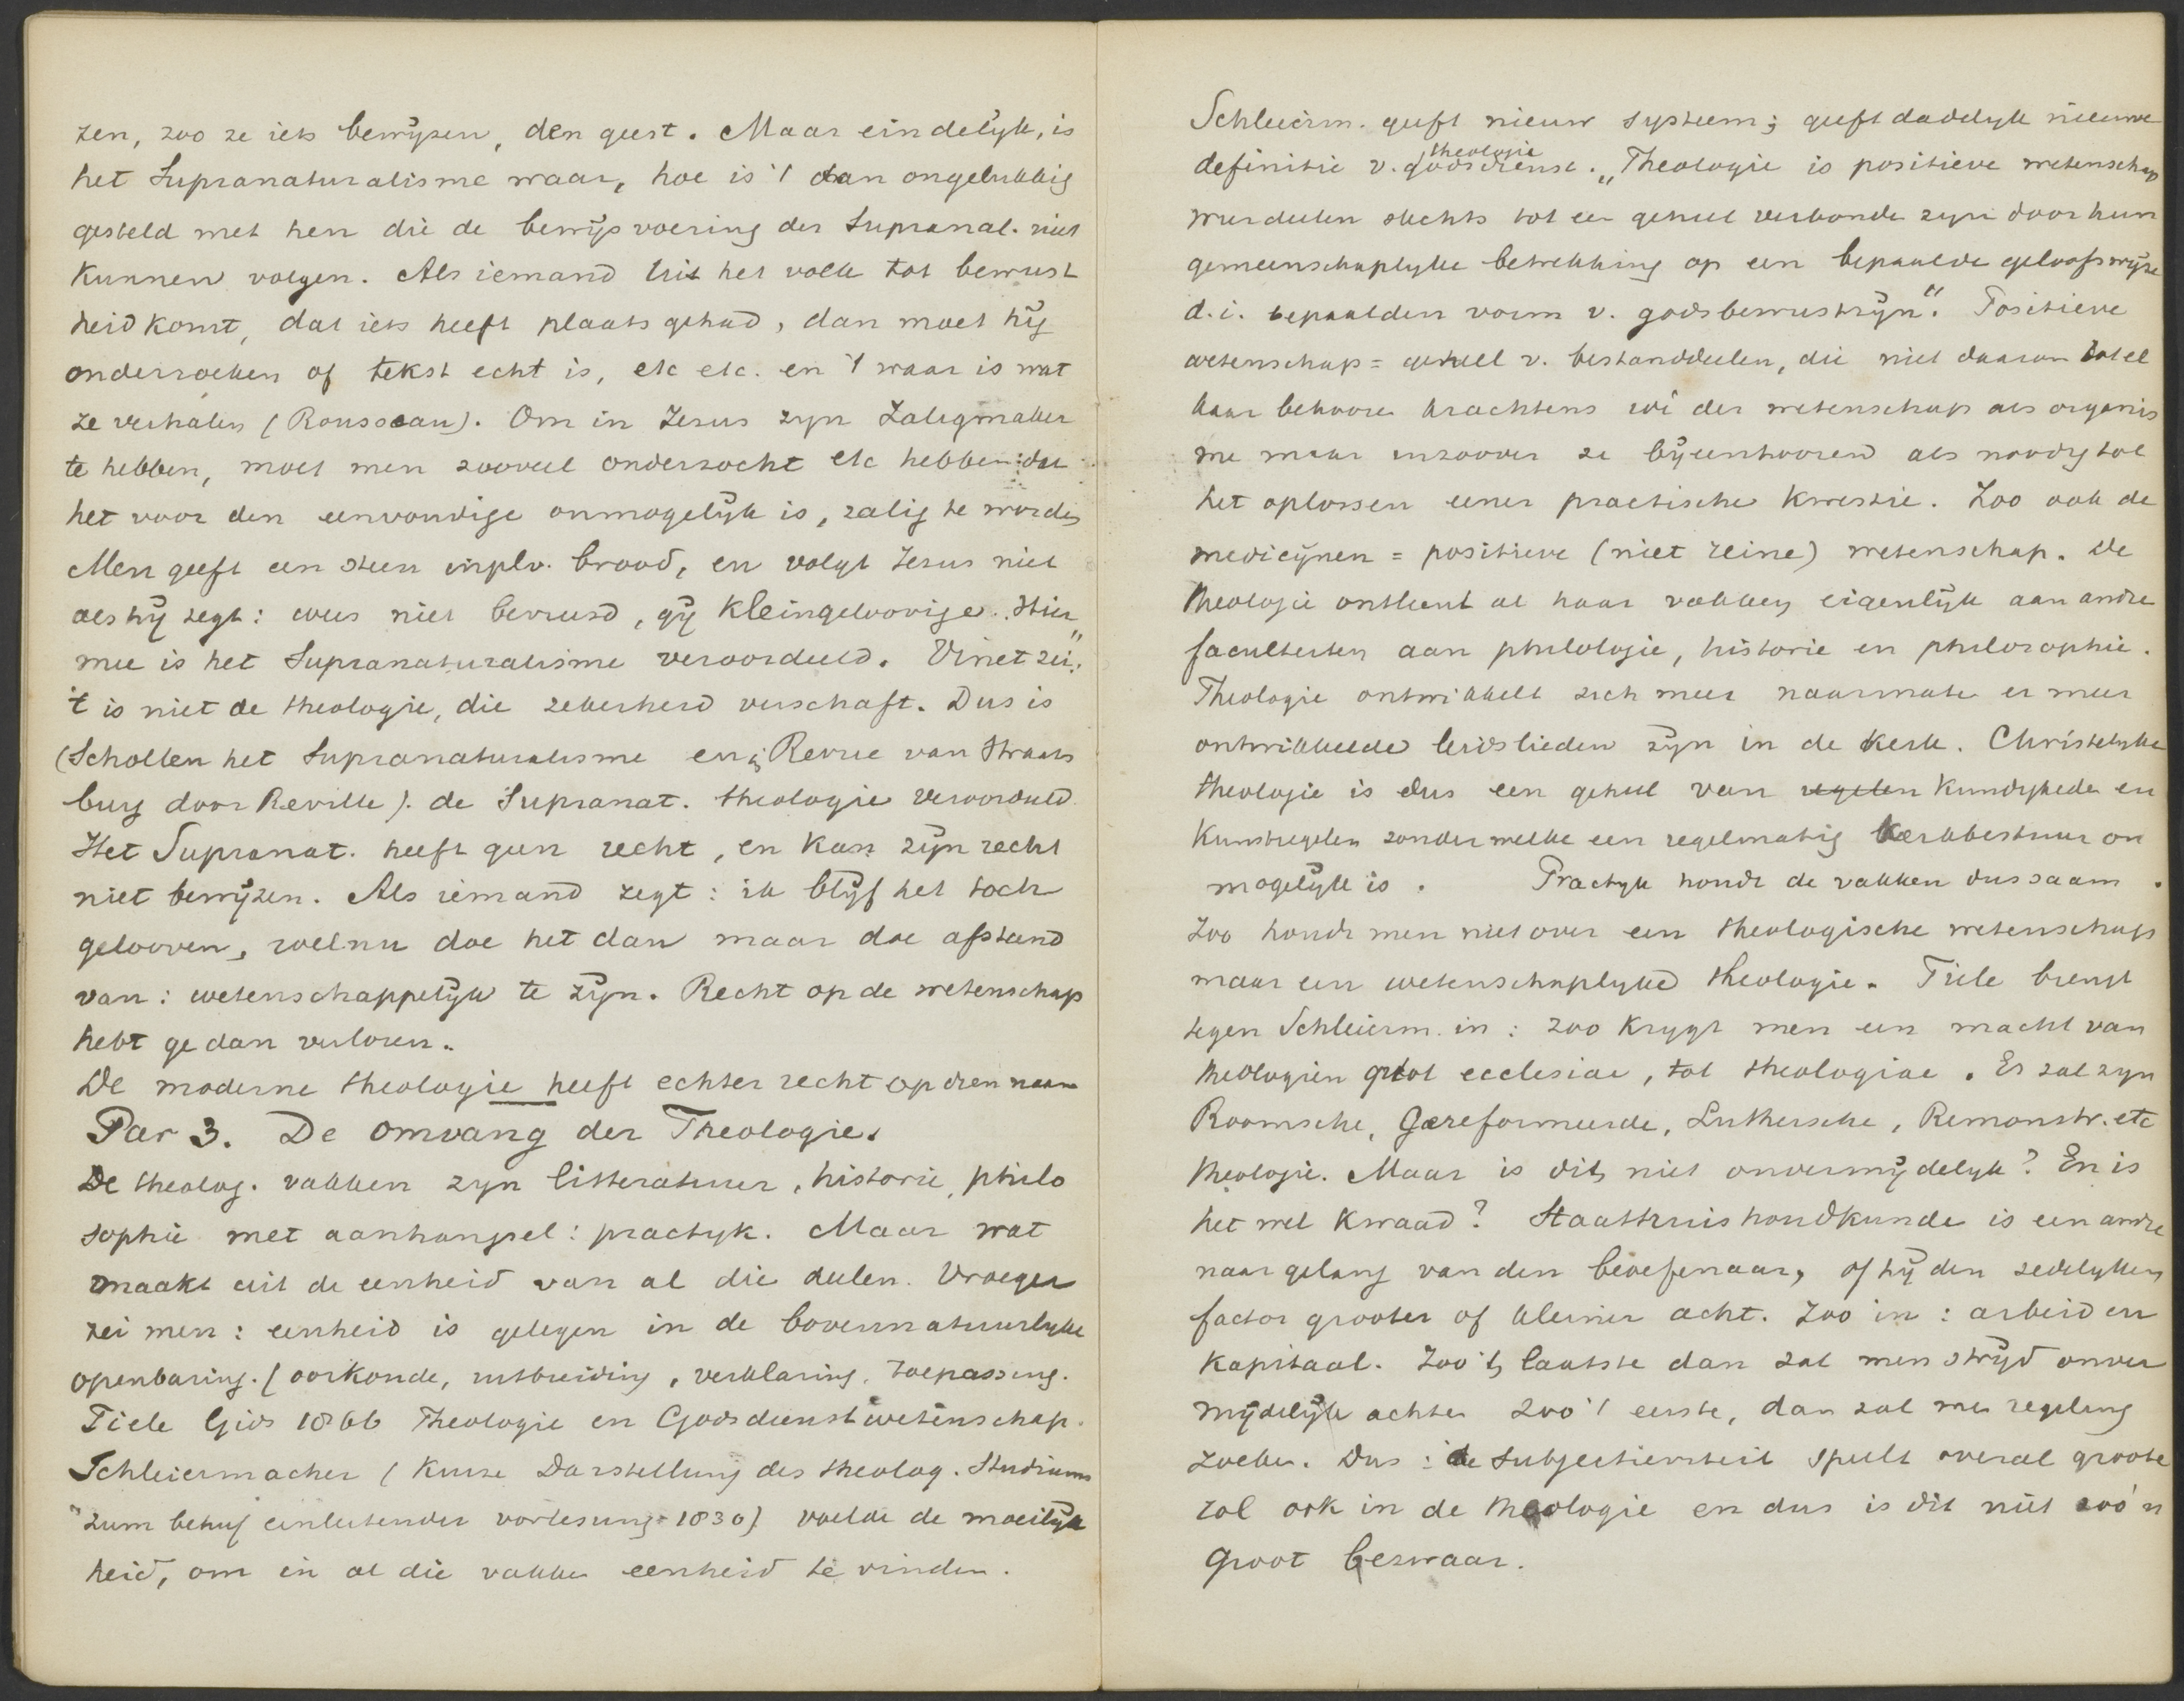 zen, zoo ze iets bewijzen, den geest. Maar eindelijk, is
het Supranaturalisme waar, hoe is 't dan ongelukkig
gesteld met hen die de bewijsvoering der Supranat. niet
kunnen volgen. Als iemand uit het volk tot bewust
heid komt, dat iets heeft plaats gehad, dan moet hij
onderzoeken of tekst echt is, etc etc. en 't waar is wat
ze verhalen (Rousseau). Om in Jezus zyn Zaligmaker
te hebben, moet men zooveel onderzocht etc hebben dat
het voor den eenvoudige onmogelijk is, zalig te worden
Men geeft een steen inplv. brood, en volgt Jezus niet
als hij zegt: wees niet bevreesd, gij kleingeloovige. Hier
mee is het Supranaturalisme veroordeeld. Vinet zei: "
't is niet de theologie, die zekerheid verschaft. Dus is
(Scholten het Supranaturalisme en; Revue van Straats
burg door Reville). de Supranat. theologie veroordeeld.
Het Supranat. heeft geen recht, en kan zijn recht
niet bewijzen. Als iemand zegt: ik blijf het toch
gelooven, welnu doe het dan maar doe afstand
van: wetenschappelijk te zijn. Recht op de wetenschap
hebt ge dan verloren.
De moderne theologie heeft echter recht op dien naam
Par 3. De omvang der Theologie.
De theolog. vakken zyn litteratuur, historie, philo
sophie met aanhangsel: practyk. Maar wat
maakt uit de eenheid van al die deelen. Vroeger
zei men: eenheid is gelegen in de bovennatuurlyke
openbaring. (oorkonde, uitbreiding, verklaring, toepassing.
Tiele Gids 1866 Theologie en Godsdienstwetenschap.
Schleiermacher (Kurze Darstellung des theolog. Studiums
zum behuf einleitender vorlesung 1830) voelde de moeilijk
heid, om in al die vakken eenheid te vinden.
Schleierm. geeft nieuw systeem; geeft dadelyk nieuwe
definitie v. godsdienst. theologie „Theologie is positieve wetenschap
wier deelen slechts tot een geheel verbonden zyn door hun
gemeenschaplyke betrekking op een bepaalde geloofswijze
d.i. bepaalden vorm v. godsbewustzijn". Positieve
wetenschap = geheel v. bestanddeelen, die niet daarom tot el
kaar behooren krachtens idé der wetenschap als organis
me maar inzoover ze bijeenhoorend als noodig tot
het oplossen eener practische kwestie. Zoo ook de
medicijnen = positieve (niet reine) wetenschap. De
theologie ontleent al haar vakken eigenlijk aan andre
faculteiten aan philologie, historie en philosophie.
Theologie ontwikkelt zich meer naarmate er meer
ontwikkelde leidslieden zijn in de kerk. Christelyke
theologie is dus een geheel van regelen kundigheden en
kunstregelen zonder welke een regelmatig kerkbestuur on
mogelijk is. Practyk houdt de vakken dus saam.
Zoo houdt men niet over een theologische wetenschap
maar een wetenschaplyke theologie. Tiele brengt
tegen Schleierm. in: zoo krygt men een macht van
theologien quot ecclesiae, tot theologiae. Er zal zyn
Roomsche, Gereformeerde, Luthersche, Remonstr. etc
theologie. Maar is dit niet onvermijdelyk? En is
het wel kwaad? Staatshuishoudkunde is een andre
naar gelang van den beoefenaar, of hij den zedelyken
factor grooter of kleiner acht. Zoo in: arbeid en
kapitaal. Zoo 't laatste dan zal men strijd onver
mijdelijk achten zoo 't eerste, dan zal men regeling
zoeken. Dus: de subjectiviteit speelt overal groote
rol ook in de theologie en dus is dit niet zoo'n
groot bezwaar.